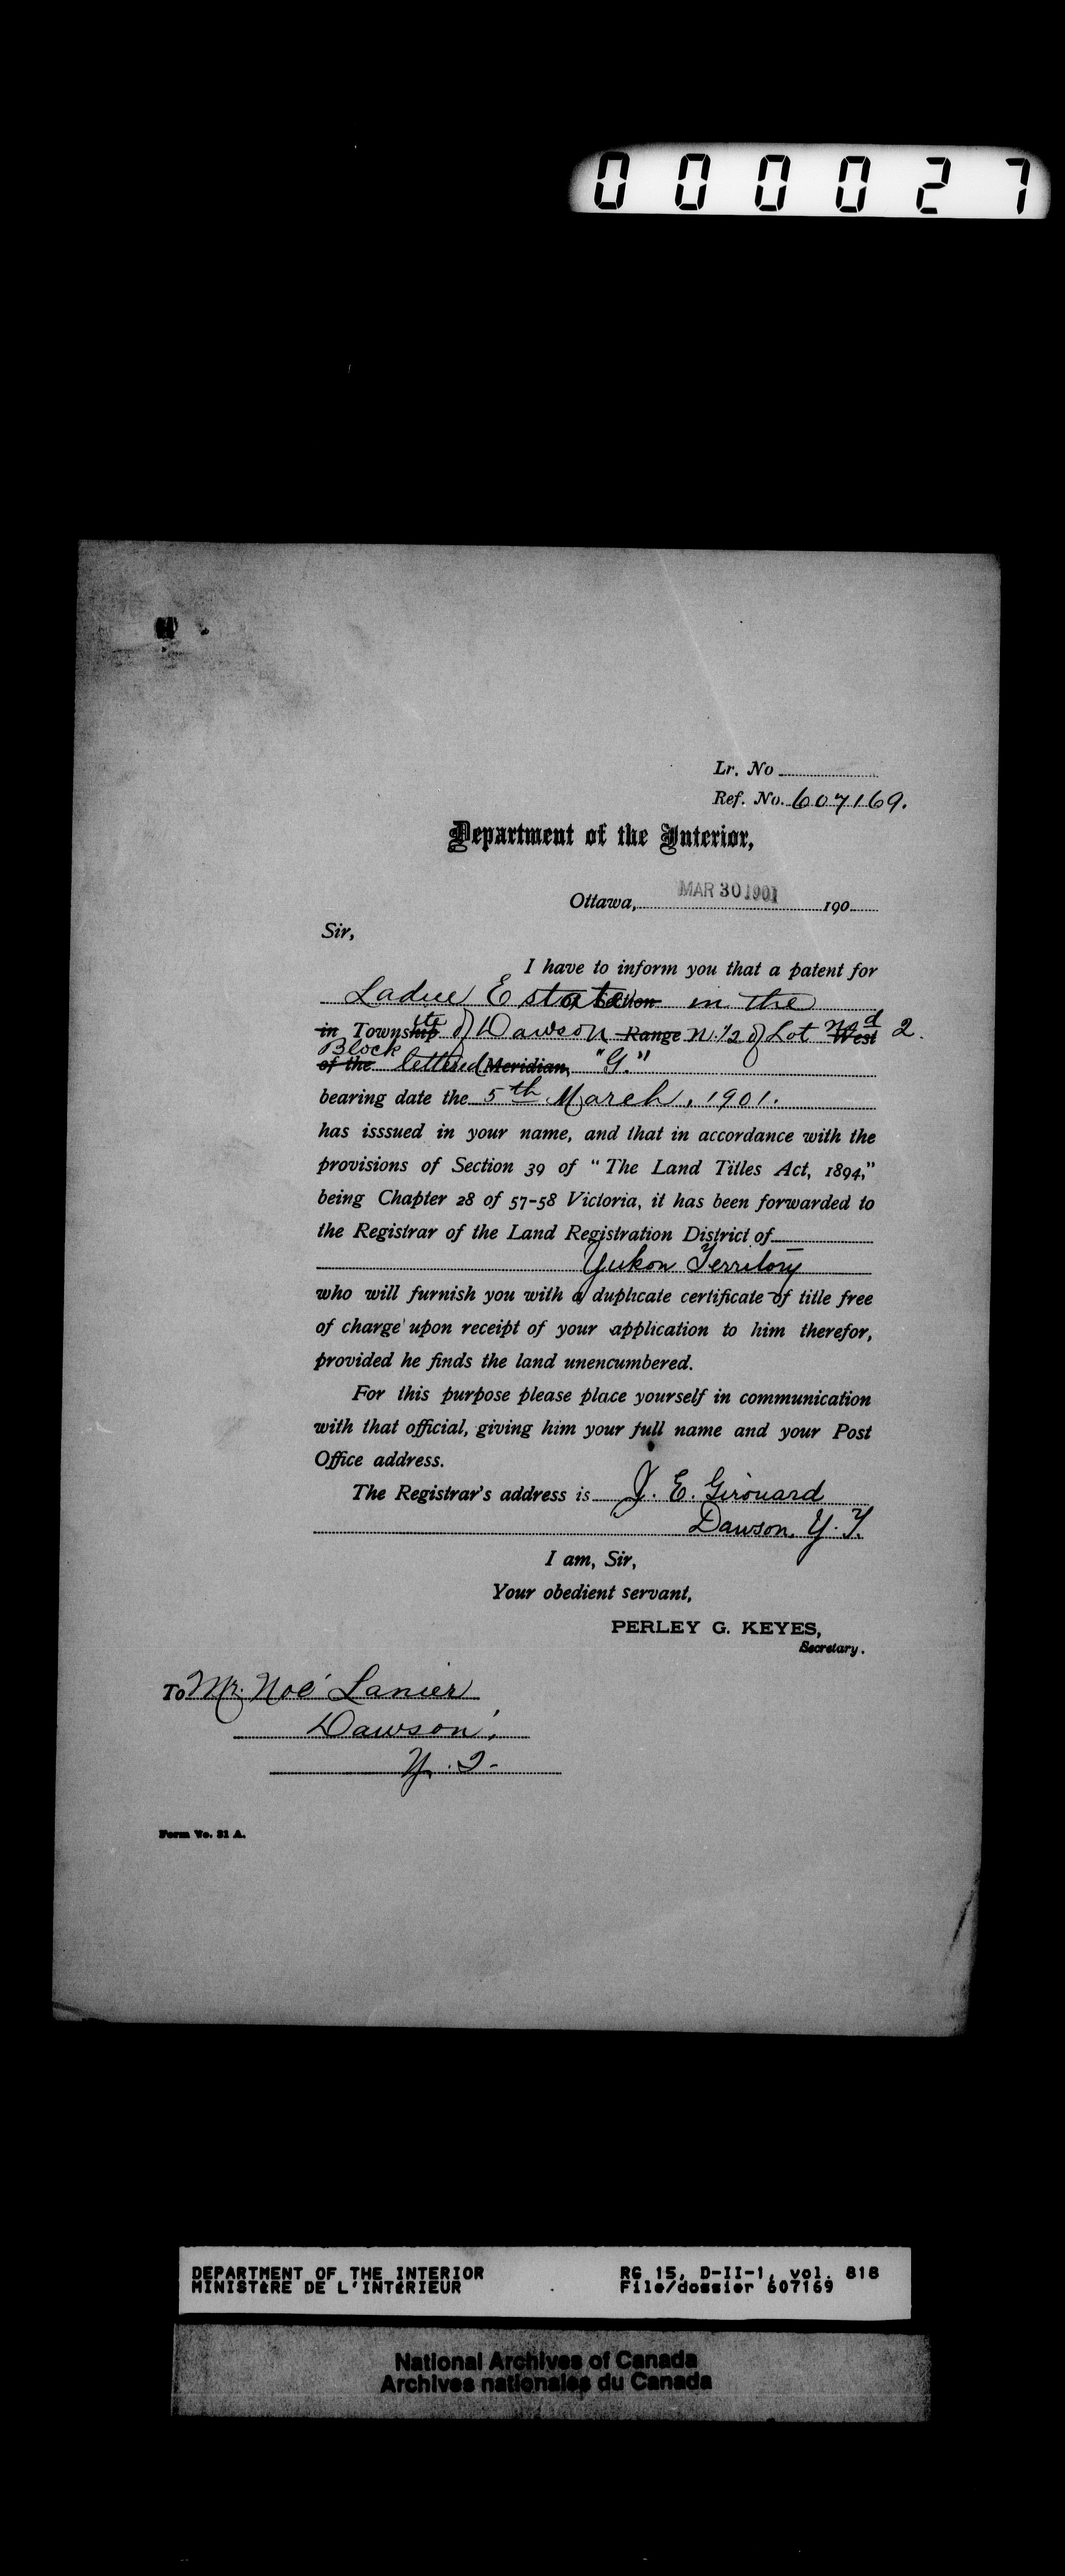 000027
Lr. No
Ref. No. 607169.
Department of the Interior,
Ottawa, MAR 30 1901 190
Sir,
I have to inform you that a patent for
Ladue Estate of Section in the
in Township ite of Dawson Range N. 1/2 of Lot No West 2.
Block
of the lettered Meridian, "G."
bearing date the 5th March, 1901.
has isssued in your name, and that in accordance with the
provisions of Section 39 of "The Land Titles Act, 1894,"
being Chapter 28 of 57-58 Victoria, it has been forwarded to
the Registrar of the Land Registration District of
Yukon Territory
who will furnish you with a duplicate certificate of title free
of charge upon receipt of your application to him therefor,
provided he finds the land unencumbered.
For this purpose please place yourself in communication
with that official, giving him your full name and your Post
Office address.
The Registrar's address is J. E. Girouard
Dawson, Y. T.
I am, Sir,
Your obedient servant,
PERLEY G. KEYES,
Secretary.
To Mr. Noé Lanier
Dawson,
Y. T.
Form No. 21 A.
DEPARTMENT OF THE INTERIOR RG 15, D-II-1, vol. 818
MINISTÈRE DE L'INTÉRIEUR File/dossier 607169
National Archives of Canada
Archives nationales du Canada